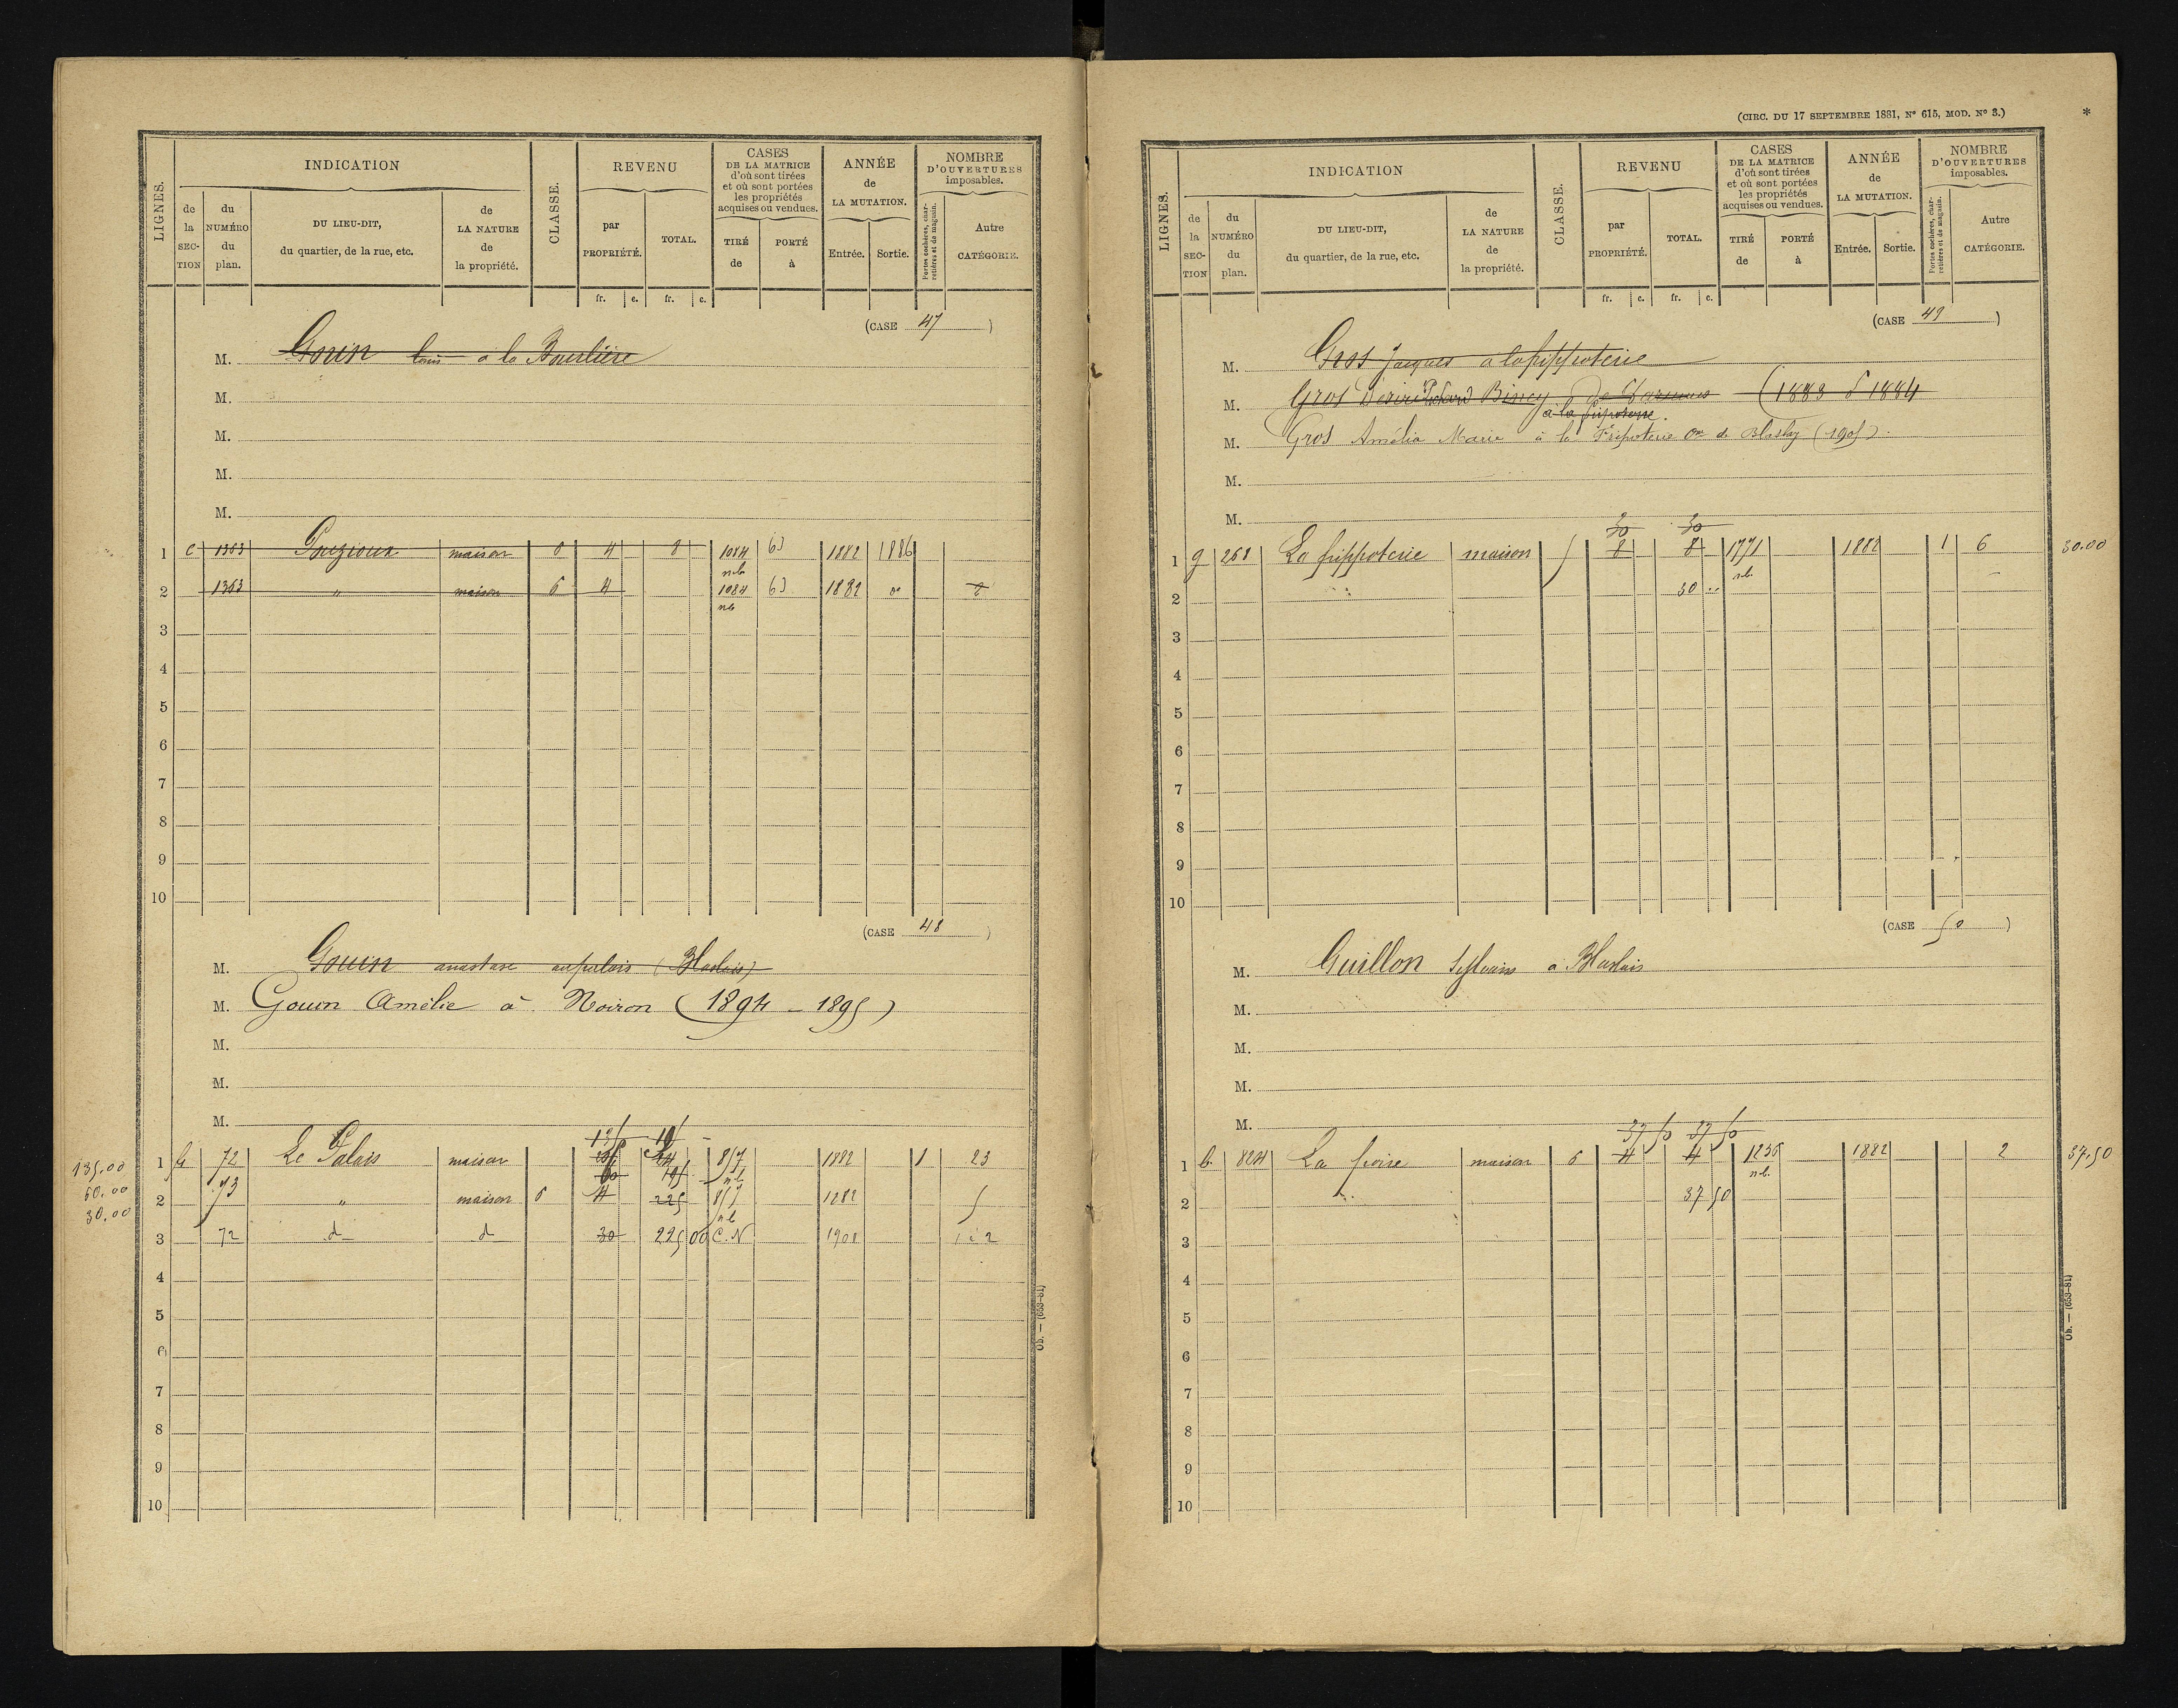 LIGNES.
INDICATION
de la SECTION
du NUMÉRO du plan.
DU LIEU-DIT, du quartier, de la rue, etc.
de LA NATURE de la propriété.
CLASSE.
REVENU
par PROPRIÉTÉ.
TOTAL.
fr. c. fr. c.
CASES DE LA MATRICE d'où sont tirées et où sont portées les propriétés acquises ou vendues.
TIRÉ de
PORTÉ à
ANNÉE de LA MUTATION.
Entrée. Sortie.
NOMBRE D'OUVERTURES imposables.
Portes cochères, charretières et de magasin.
Autre CATÉGORIE.
(CASE 47)
M. Gouin Louis à la
M.
M.
M.
M.
1 C 1363 maison 6 4 8 1084 63 1882 1886
nb
2 1363 " maison 6 4 1084 63 1882
nb
3
4
5
6
7
8
9
10
(CASE 48)
M. Gouin anastase au palais (Blaslais)
M. Gouin Amélie à Noiron (1894 - 1895)
M.
M.
M.
135.00 1 72 Le Palais maison 24 857 1882 1 23
60 195 nb
60.00 2 73 " maison 6 4 225 857 1882 5
nb
30.00
3 72 d d 30 225 00 C.N 1908 2
4
5
6
7
8
9
10
Ob. — (653-81)
(CIRC. DU 17 SEPTEMBRE 1881, N° 615, MOD. N° 3.) *
LIGNES.
INDICATION
de la SECTION
du NUMÉRO du plan.
DU LIEU-DIT, du quartier, de la rue, etc.
de LA NATURE de la propriété.
CLASSE.
REVENU
par PROPRIÉTÉ.
TOTAL.
fr. c. fr. c.
CASES DE LA MATRICE d'où sont tirées et où sont portées les propriétés acquises ou vendues.
TIRÉ de
PORTÉ à
ANNÉE de LA MUTATION.
Entrée. Sortie.
NOMBRE D'OUVERTURES imposables.
Portes cochères, charretières et de magasin.
Autre CATÉGORIE.
(CASE 49)
M. Gros Jacques à la frippoterie
M. Gros Désiré (1883 1884
à la
M. Gros Amélia Marie à la Friperterie de (1905)
M.
M.
30 30
1 g 268 La frippoterie maison 5 8 8 1771 1882 1 6 30.00
nb.
2 30
3
4
5
6
7
8
9
10
(CASE 50)
M. Guillon Sylvain à Blaslais
M.
M.
M.
M.
37 50 37 50
1 b. 824 La poise maison 6 4 4 1236 1882 2 37.50
nb.
2 37 50
3
4
5
6
7
8
9
10
Ob. — (653-81)